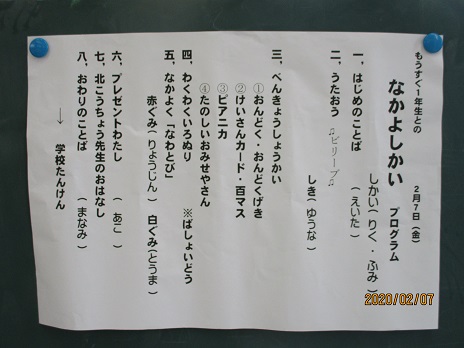 もうすぐ1年生との
なかよしかい　プログラム
2月7日（金）
しかい（りく・ふみ）
一、はじめのことば　（えいた）
二、うたおう　♫ビリーブ♫
しき（ゆうな）
三、べんきょうしょうかい
①おんどく・おんどくげき
②けいさんカード・百マス
③ピアニカ
④たのしいおみせやさん
四、わくわくいろぬり　※ばしょいどう
五、なかよく「なわとび」
赤ぐみ（りょうじん）　白ぐみ（とうま）
六、プレゼントわたし　（あこ）
七、北こうちょう先生のおはなし
八、おわりのことば　（まなみ）
→　学校たんけん
2020/02/07